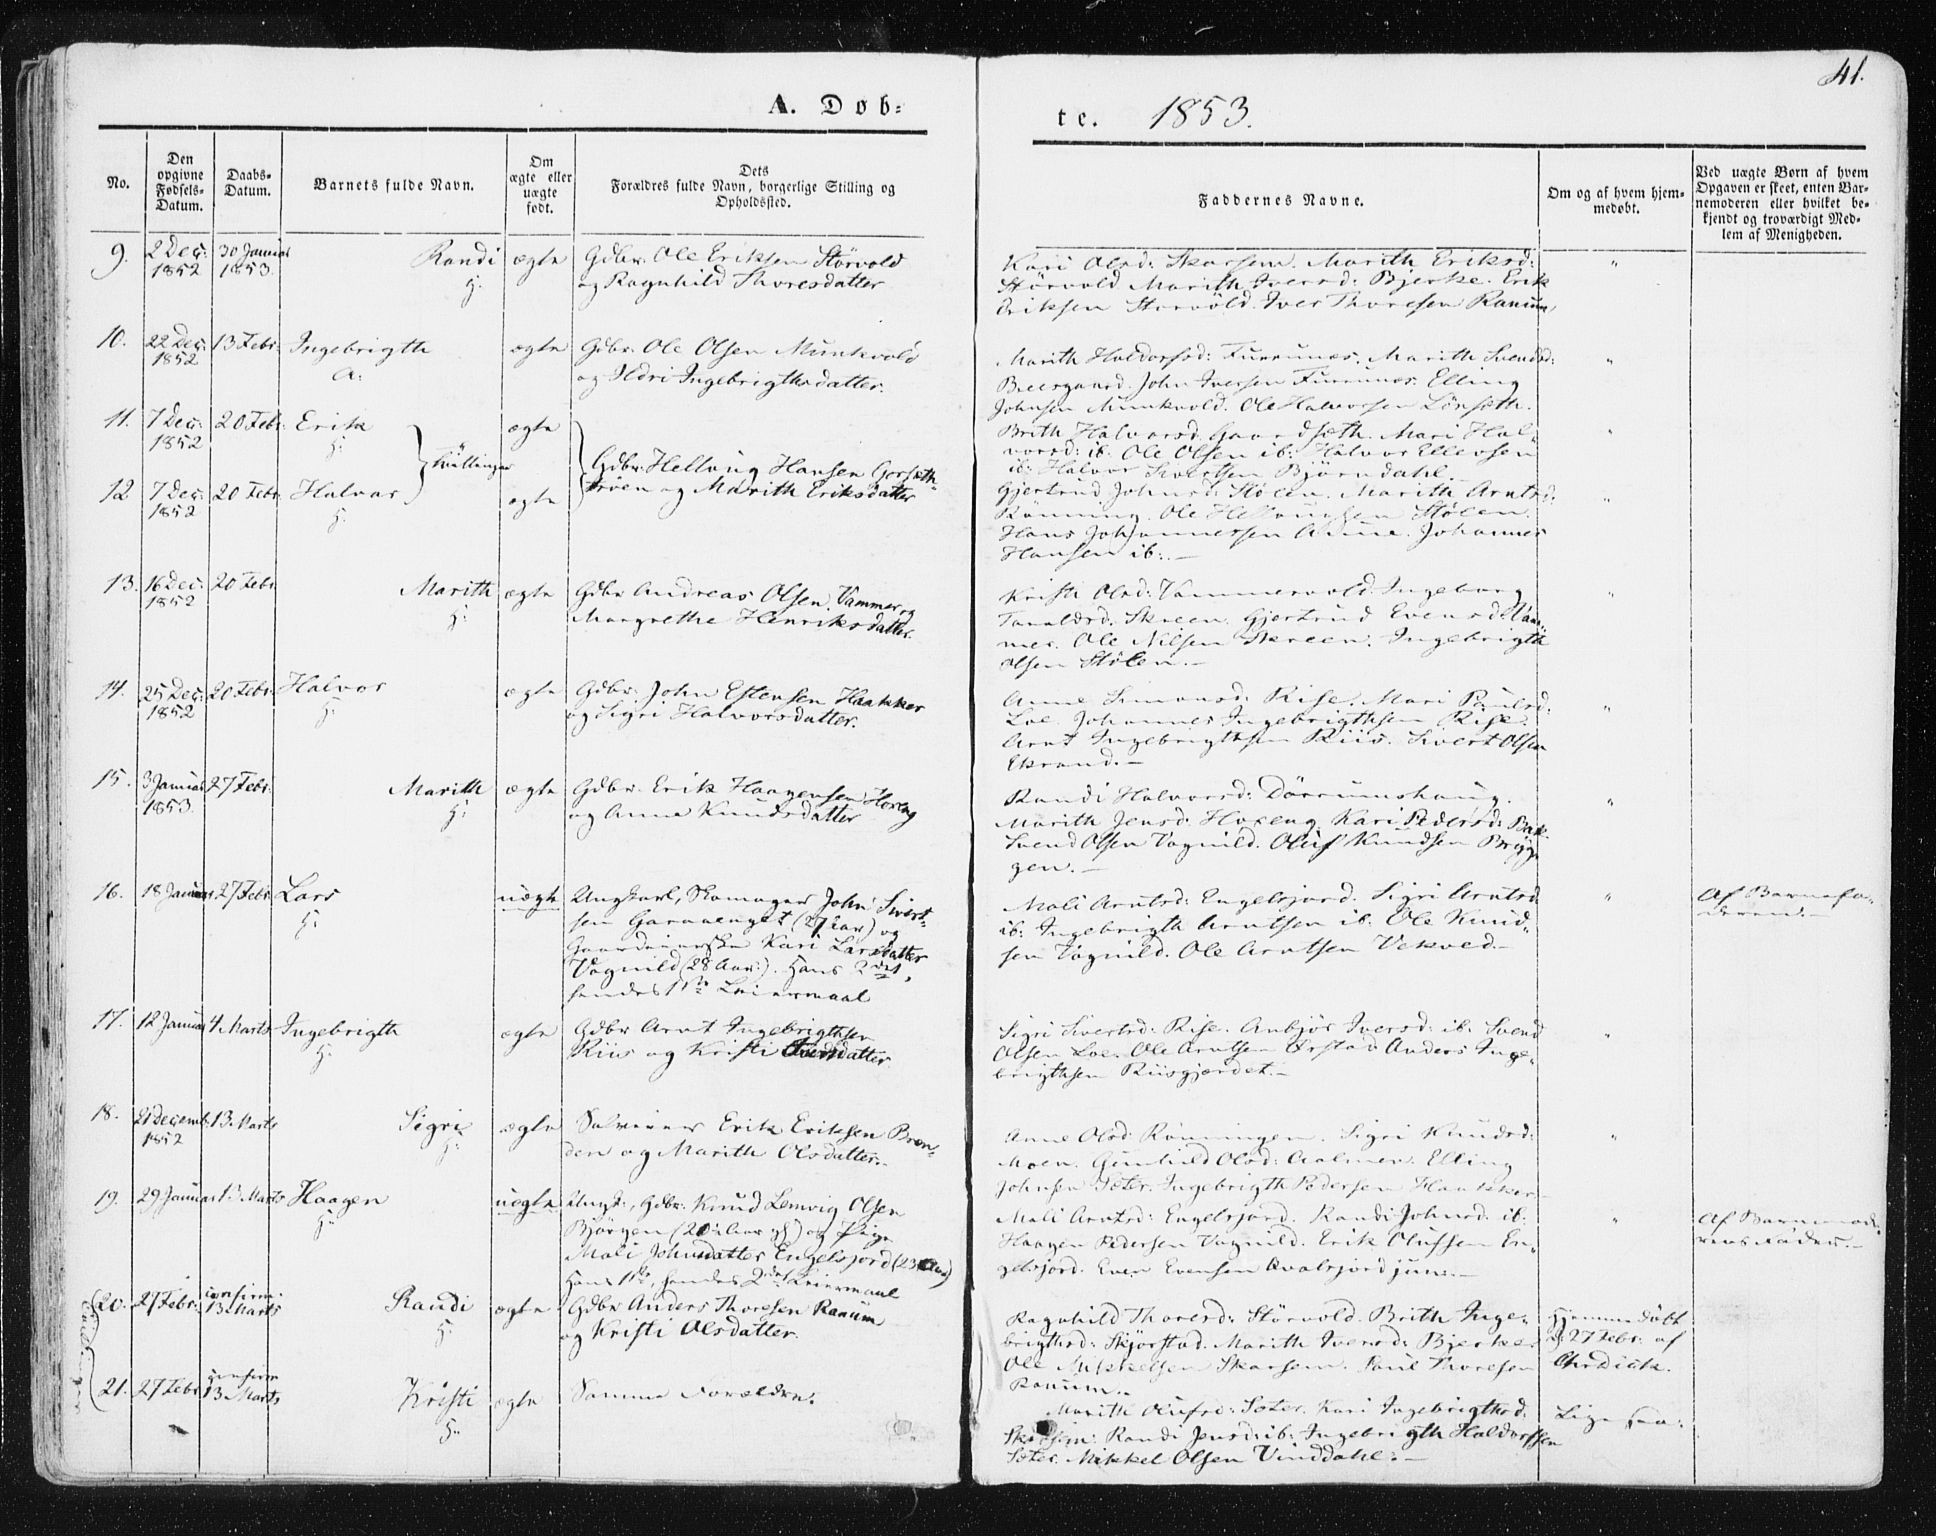 41.
A. Døb=
te. 1853.
No.
Den opgivne Fødsels-Datum.
Daabs-Datum.
Barnets fulde Navn.
Om ægte eller uægte født.
Dets Forældres fulde Navn, borgerlige Stilling og Opholdssted.
Faddernes Navne.
Om og af hvem hjemmedøbt.
Ved uægte Børn af hvem Opgaven er skeet, enten Barnemoderen eller hvilket bekjendt og troværdigt Medlem af Menigheden.
9. 2 Dec: 1852 30 Januar 1853. Randi H. ægte Gdbr. Ole Eriksen Störvold
og Ragnhild Thoresdatter
Kari Olsd: Skarsem. Marith Eriksd:
Störvold Marith Iversd: Bjerke. Erik
Eriksen Storvöld. Iver Thoresen Ranum,
10. 22 Dec: 1852 13 Febr: Ingebrigth A: ægte Gdbr. Ole Olsen Munkvold
og Ildri Ingebrigthsdatter.
Marith Haldorsd: Furrunes. Marith Svendsd:
John Iversen Furrunes. Elling
Johnsen Munkvold. Ole Halvorsen Lönseth.
11. 7 Dec: 1852 20 Febr: Erik H. ægte
tvillinger
Gdbr: Hellvug Hansen Gorseth-
tröen og Marith Eriksdatter
Brith Halvorsd. Gaardseth. Mari Hal-
vorsd: ib. Ole Olsen ib: Halvor Ellevsen
ib: Halvor Sivertsen Björndahl.
12 7 Dec: 1852 20 Febr: Halvor H. ægte
Gjertrud Johnsd: Stölen. Marith Arntsd.
Rönning. Ole Hellvugsen Stölen.
Hans Johannessen Aune. Johannes
Hansen ib:.-
13. 16 Dec: 1852 20 Febr. Marith H: ægte Gdbr Andreas Olsen Vammer og
Margrethe Henriksdatter.
Kristi Olsd: Vammervold. Ingeborg
Skreen. Gjertrud Evensd: Vam-
mer. Ole Nilsen Skreen. Ingebrigth
Olsen Stölen.-
14. 25 Dec: 1852 20 Febr: Halvor H. ægte Gdbr: John Estensen Haakker
og Sigri Halvorsdatter.
Anne Simonsd: Rise. Mari Paulsd:
Loe. Johannes Ingebrigthsen Rise.
Arnt Ingebrigthsen Riis. Sivert Olsen
Ekrand.-
15. 3 Januar 1853. 27 Febr. Marith H: ægte Gdbr. Erik Haagensen Hoxeng
og Anne Knudsdatter
Randi Halvorsd: Dörrumshaug.
Marith Jensd. Hoxeng Kari Pedersd: Bak
Svend Olsen Vognild. Oluf Knudsen Brygge
gen.-
16. 18 Januar 27 Febr. Lars H. uægte Ungkarl, Skomager John Sivert-
sen Garaaenget (27 Aar) og
Gaardmandske Kari Larsdatter
Vognild (28 Aar:). Hans 2det,
hendes 1ste Leiermaal
Mali Arntsd: Engelsjord. Sigri Arntsd
ib: Ingebrigth Arntsen ib. Ole Knud-
sen Vognild. Ole Arntsen Vekved.-
Af Barnefa-
deren.-
17. 12 Januar 4 Marts Ingebrigth H. ægte Gdbr Arnt Ingebrigthsen
Riis og Kristi Iversdatter.
Sigri Sivertsd: Rise. Anbjör Iversd: ib: Svend
Olsen Loe. Ole Arntsen Ørstad Anders Inge-
brigthsen Riisgjerdet.-
18. 21 Decemb. 1852 13 Marts Sigri H: ægte Selveier Erik Eriksen Bren-
den og Marith Olsdatter.
Anne Olsd: Rönningen. Sigri Knudsd:
Moen. Gunhild Olsd: Aalmen. Elling
Johnsen Sæter. Ingebrigth Pedersen Haakker
19. 29 Januar 13 Marts Haagen H. uægte Ungk:, Gdbr. Knud Lemvig Olsen
Björgen (20 Aar) og Pige
Mali Johnsdatter Engelsjord (23 Aar)
Hans 1ste, hendes 2det Leiermaal
Mali Arntsd: Engelsjord. Randi Johnsd. ib:
Haagen Pedersen Vognild. Erik Olufsen En-
gelsjord. Even Evensen Avalsjord jun:.-
Af Barnemode-
rens Fader.-
20. 27 Febr. confirm: 13 Marts Randi H. ægte Gdbr Anders Thoresen Ranum
og Kristi Olsdatter
Ragnhild Thoresd: Störvold. Brith Inge-
brigthsd: Skjörstad. Marith Iversd: Bjerke
Ole Mikkelsen Skarsem. Paul Thoresen
Ranum.
Hjemmedöbt
d: 27 Febr: af
21. 27 Febr confirm 13 Marts Kristi H. ægte Samme Forældre.
Marith Olufsd: Sæter. Kari Ingebrigthsd.
Randi Jensd: ib: Ingebrigth Haldorssen
Sæter. Mikkel Olsen Vinddahl:.-
Ligesaa.